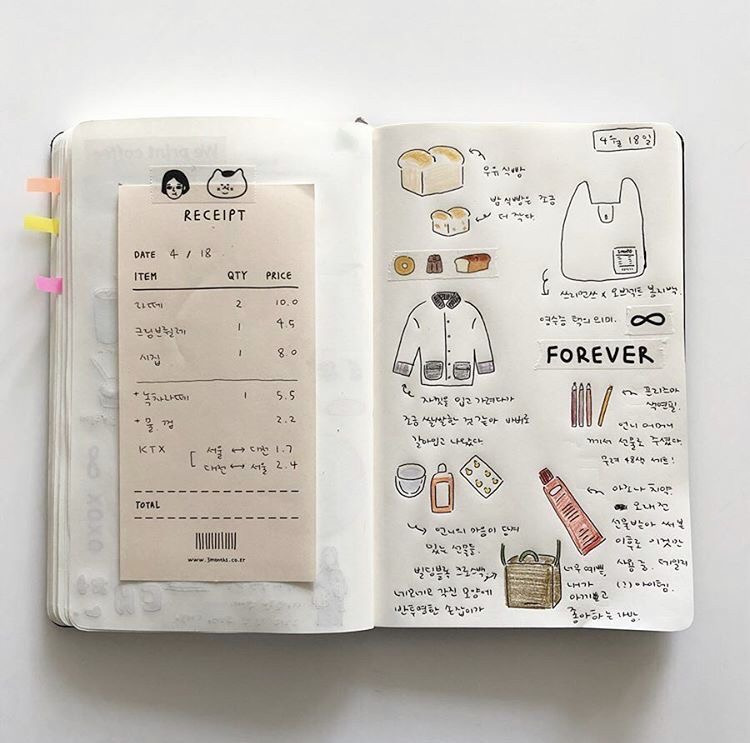 We print coffee
RECEIPT
DATE 4 / 18
ITEM QTY PRICE
라떼 2 10.0
크림브륄레 1 4.5
시집 1 8.0
+ 녹차라떼 1 5.5
+ 물. 껌 2.2
KTX [ 서울 ↔ 대전 1.7
대전 ↔ 서울 2.4
TOTAL
www.3months.co.kr
XOXO
4월 18일
우유식빵
밤식빵은 조금
더 작다.
쓰리먼쓰 x 오브젝트 봉지백.
영수증 택의 의미. ∞
FOREVER
자켓을 입고 가려다가
조금 쌀쌀한 것 같아 바꿔
갈아입고 나왔다.
프리즈마
색연필.
언니 어머니
께서 선물로 주셨다.
무려 48색 세트!
언니의 마음이 담겨
있는 선물들.
아조나 치약.
오래전
선물받아 써본
이후로 이것만
사용 중. 데일리
아이템.
빌딩블록 크로스백
네모네모 각진 모양에
반투명한 손잡이가
너무 예쁨.
내가
아끼고
좋아하는 가방.